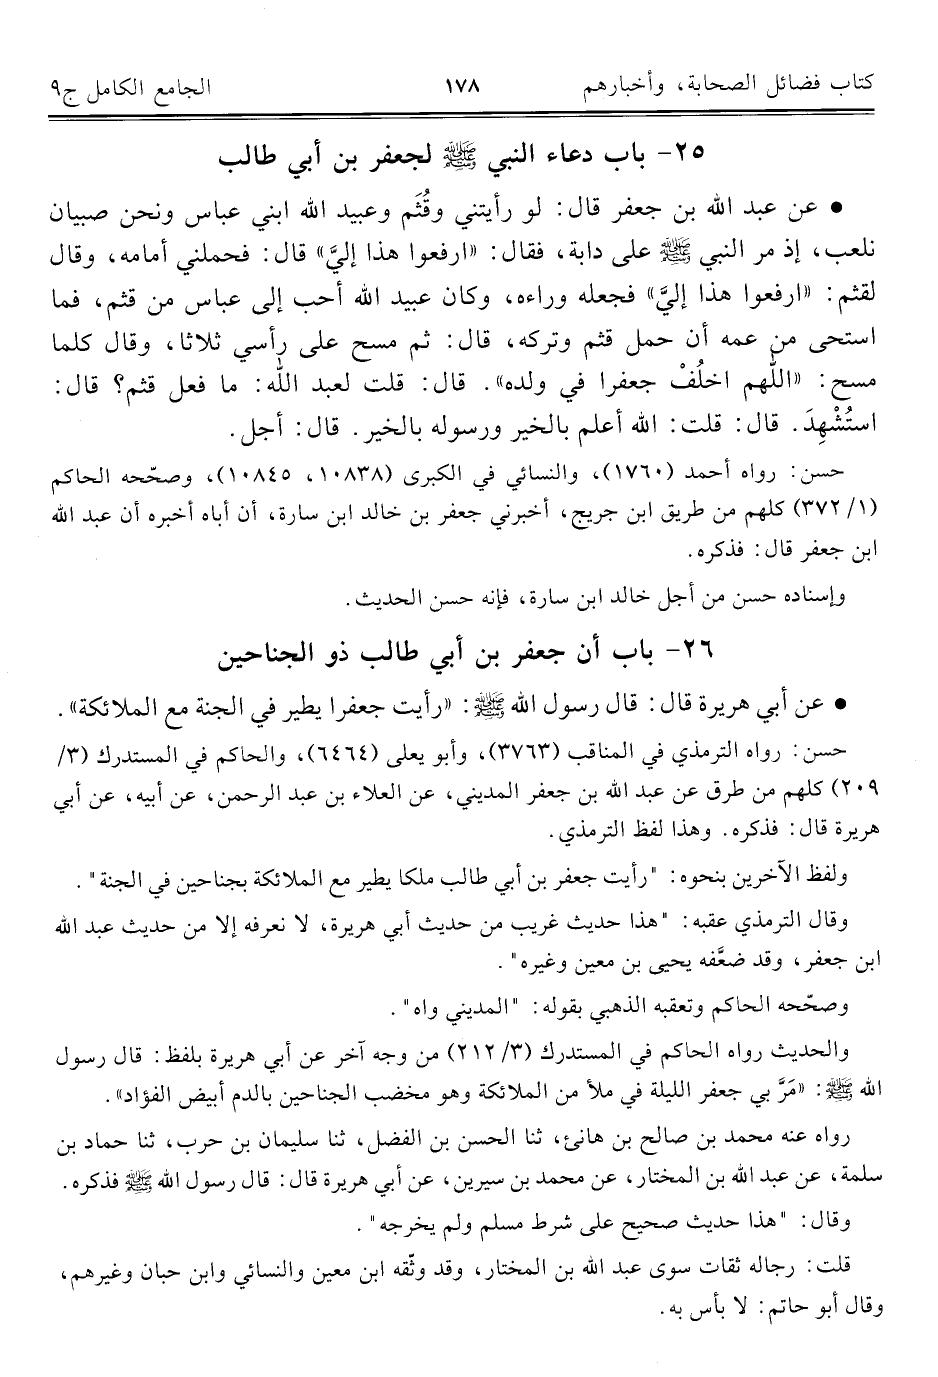 كتاب فضائل الصحابة، وأخبارهم ١٧٨ الجامع الكامل ج٩
٢٥- باب دعاء النبي ﷺ لجعفر بن أبي طالب
• عن عبد الله بن جعفر قال: لو رأيتني وقُثَم وعبيد الله ابني عباس ونحن صبيان
نلعب، إذ مر النبي ﷺ على دابة، فقال: «ارفعوا هذا إليَّ» قال: فحملني أمامه، وقال
لقثم: «ارفعوا هذا إليَّ» فجعله وراءه، وكان عبيد الله أحب إلى عباس من قثم، فما
استحى من عمه أن حمل قثم وتركه، قال: ثم مسح على رأسي ثلاثا، وقال كلما
مسح: «اللَّهم اخلُفْ جعفرا في ولده». قال: قلت لعبد اللَّه: ما فعل قثم؟ قال:
استُشْهِدَ. قال: قلت: الله أعلم بالخير ورسوله بالخير. قال: أجل.
حسن: رواه أحمد (١٧٦٠)، والنسائي في الكبرى (١٠٨٣٨، ١٠٨٤٥)، وصحّحه الحاكم
(١/ ٣٧٢) كلهم من طريق ابن جريج، أخبرني جعفر بن خالد ابن سارة، أن أباه أخبره أن عبد الله
ابن جعفر قال: فذكره.
وإسناده حسن من أجل خالد ابن سارة، فإنه حسن الحديث.
٢٦- باب أن جعفر بن أبي طالب ذو الجناحين
• عن أبي هريرة قال: قال رسول الله ﷺ: «رأيت جعفرا يطير في الجنة مع الملائكة».
حسن: رواه الترمذي في المناقب (٣٧٦٣)، وأبو يعلى (٦٤٦٤)، والحاكم في المستدرك (٣/
٢٠٩) كلهم من طرق عن عبد الله بن جعفر المديني، عن العلاء بن عبد الرحمن، عن أبيه، عن أبي
هريرة قال: فذكره. وهذا لفظ الترمذي.
ولفظ الآخرين بنحوه: "رأيت جعفر بن أبي طالب ملكا يطير مع الملائكة بجناحين في الجنة".
وقال الترمذي عقبه: "هذا حديث غريب من حديث أبي هريرة، لا نعرفه إلا من حديث عبد الله
ابن جعفر، وقد ضعَّفه يحيى بن معين وغيره".
وصحّحه الحاكم وتعقبه الذهبي بقوله: "المديني واه".
والحديث رواه الحاكم في المستدرك (٣/ ٢١٢) من وجه آخر عن أبي هريرة بلفظ: قال رسول
الله ﷺ: «مَرَّ بي جعفر الليلة في ملأ من الملائكة وهو مخضب الجناحين بالدم أبيض الفؤاد».
رواه عنه محمد بن صالح بن هانئ، ثنا الحسن بن الفضل، ثنا سليمان بن حرب، ثنا حماد بن
سلمة، عن عبد الله بن المختار، عن محمد بن سيرين، عن أبي هريرة قال: قال رسول الله ﷺ فذكره.
وقال: "هذا حديث صحيح على شرط مسلم ولم يخرجه".
قلت: رجاله ثقات سوى عبد الله بن المختار، وقد وثّقه ابن معين والنسائي وابن حبان وغيرهم،
وقال أبو حاتم: لا بأس به.